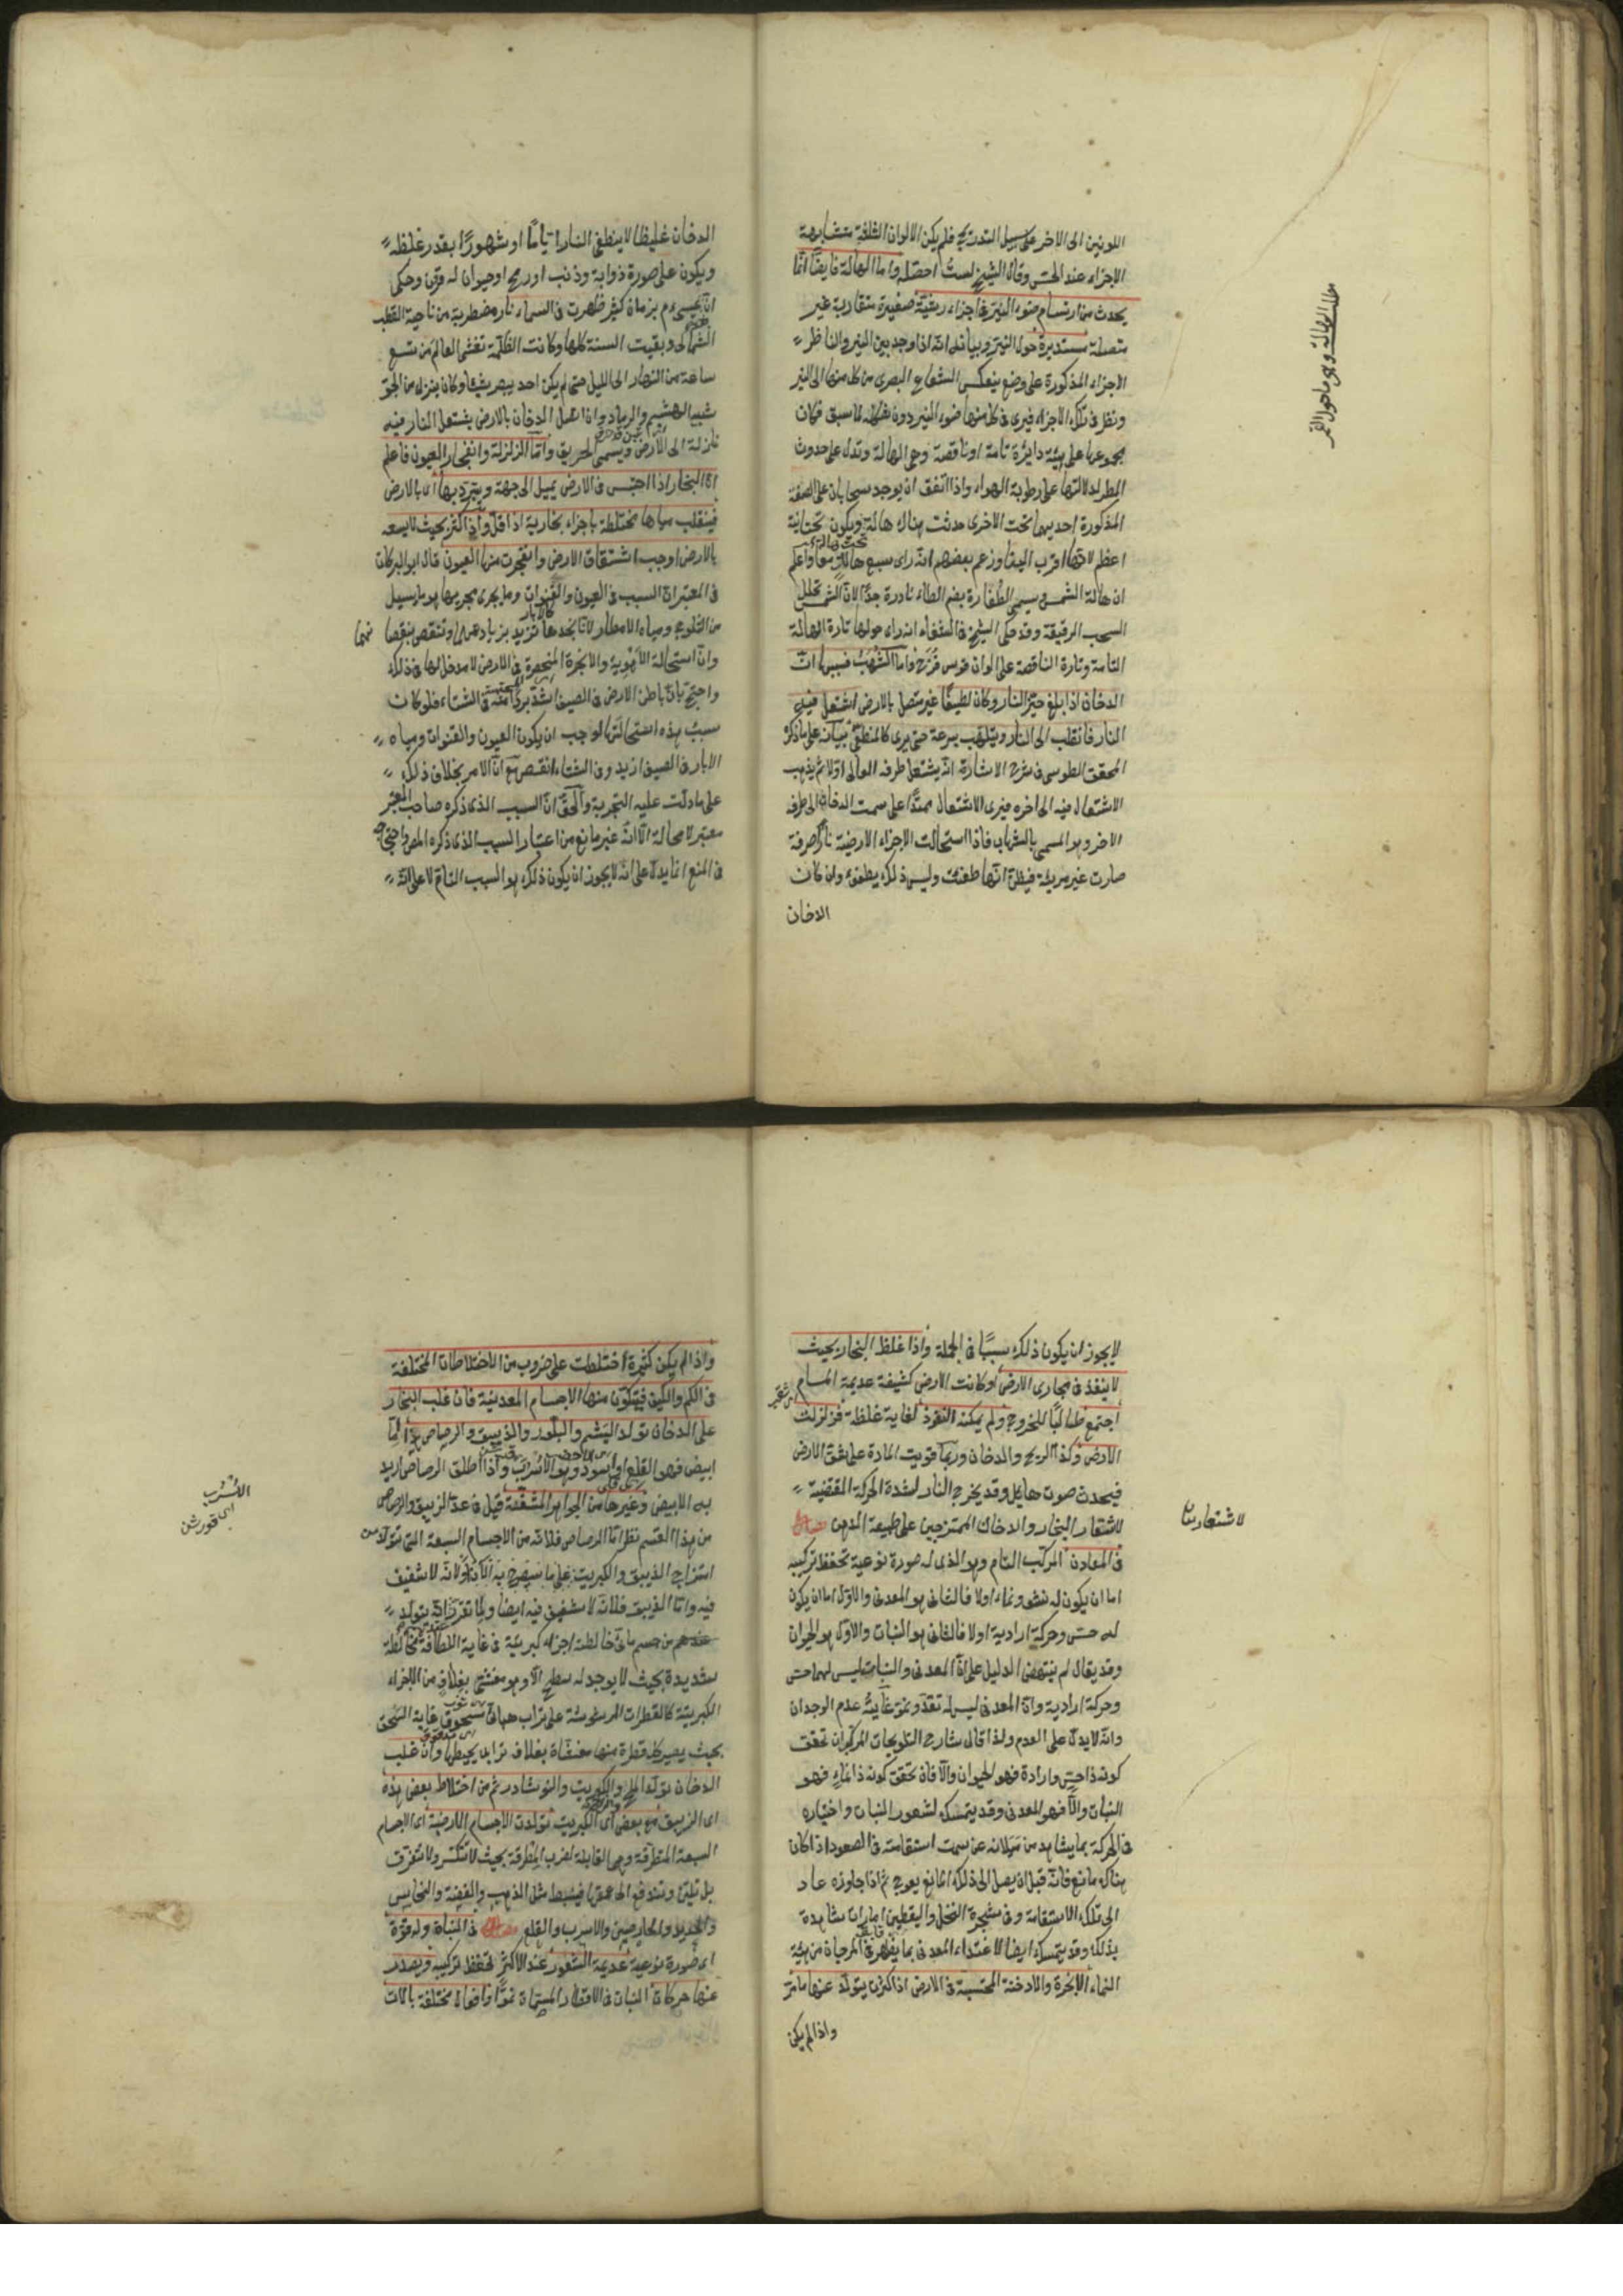 اللونين الى الاخر على سبيل التدريج فلم يكن الالوان الثلثة متشابهة
الاجزاء عند الحس وقال الشيخ لست احصله واما الهالة فايضا انما
يحدث من ارتسام ضوء النير فى اجزاء رشية صغيرة متقاربة غير
متصلة مستديرة حول النير وبيانه انه اذا وجد بين النير والناظر
الاجزاء المذكورة على وضع ينعكس الشعاع البصرى من كل منها الى النير
ونظر فى تلك الاجزاء فيرى فى كل منها ضوء النير دون شكله لما سبق فكان
مجموعها على هيئة دايرة تامة او ناقصة وهى الهالة وتدل على حدوث
المطر لدلالتها على رطوبة الهواء واذا اتفق ان يوجد سحابان على الصفة
المذكورة احديهما تحت الاخرى حدثت هناك هالة تحت هالة ويكون تحتانية
اعظم لانها اقرب الينا وزعم بعضهم انه راى سبع هالات معا واعلم
ان هالة الشمس ويسمى الطفاوة بضم الطاء نادرة جدا لان الشمس تحلل
السحب الرقيقة وقد حكى الشيخ فى الشفاء انه راى حولها تارة الهالة
التامة وتارة الناقصة على الوان قوس قزح واما الشهب فسببها ان
الدخان اذا بلغ حيز النار وكان لطيفا غير متصل بالارض اشتعل فيه
النار فانقلب الى النار ويلتهب بسرعة حتى يرى كالمنطفئ بيانه على ما ذكره
المحقق الطوسى فى شرح الاشارة انه يشتعل طرفه العالى اولا ثم يذهب
الاشتعال فيه الى اخره فيرى الاشتعال ممتدا على سمت الدخان الى طرفه
الاخر وهو المسمى بالشهاب فاذا استحالت الاجزاء الارضية نارا صرفة
صارت غير مريئة فيظن انها طفئت وليس ذلك بطفئ وان كان
الدخان
مطلب الهالة وهو ما حول القمر
الدخان غليظا لا ينطفى النار اياما او شهورا بقدر غلظه
ويكون على صورة ذوابة وذنب او رمح او حيوان له قرن وحكى
ان بعد عيسى م بزمان كثير ظهرت فى السماء نار مضطربة من ناحية القطب
الشمالى وبقيت السنة كلها وكانت الظلمة تغشى العالم من تسع
ساعة من النهار الى الليل حتى لم يكن احد يبصر شيئا وكان ينزل من الجو
شبيه الهشيم والرماد وان اتصل الدخان بالارض يشتعل النار فيه
نازلة الى الارض ويسمى الحريق واما الزلزلة وانفجار العيون فاعلم
ان البخار اذا احتبس فى الارض يميل الى جهة ويتبرد بها اى بالارض
فينقلب مياها مختلطة باجزاء بخارية اذا قل واذا كثر بحيث لا يسعه
بالارض اوجب انشقاق الارض وانفجرت منها العيون قال ابو البركان
فى المعتبر ان السبب فى العيون والقنوات وما يجرى مجريها هو ما يسيل
من الثلوج ومياه الامطار لانا نجدها تزيد بزيادتهما وتنقص بنقصانهما
وان استحالة الاهوية والابخرة المنحصرة فى الارض لا مدخل لها فى ذلك
واحتج بان باطن الارض فى الصيف اشد بردا منه فى الشتاء فلو كان
سبب هذه استحالتها لوجب ان يكون العيون والقنوات ومياه
الابار فى الصيف ازيد وفى الشتاء انقص مع ان الامر بخلاف ذلك
على ما دلت عليه التجربة والحق ان السبب الذى ذكره صاحب المعتبر
معتبر لا محالة الا انه غير مانع من اعتبار السبب الذى ذكره المص واحتجاجه
فى المنع انما يدل على انه لا يجوز ان يكون ذلك هو السبب التام لا على انه
لا يجوز ان يكون ذلك سببا فى الجملة واذا غلظ البخار بحيث
لا ينفذ فى مجارى الارض او كانت الارض كثيفة عديمة المسام
اجتمع طالبا للخروج ولم يمكنه النفوذ لغاية غلظة فزلزلت
الارض وكذا الريح والدخان وربما قويت المادة على شق الارض
فيحدث صوت هايل وقد يخرج النار لشدة الحركة المقتضية
لاشتعار البخار والدخان الممتزجين على طبيعة الدهن فصل
فى المعادن المركب التام وهو الذى له صورة نوعية تحفظ تركيبه
اما ان يكون له نشو ونماء اولا فالثانى هو المعدنى والاول اما ان يكون
له حس وحركة ارادية اولا فالثانى هو النبات والاول هو الحيوان
وقد يقال لم ينتهض الدليل على ان المعدنى والنبات ليس لهما حس
وحركة ارادية وان المعدنى ليس له تغذ ونمو غايته عدم الوجدان
وانه لا يدل على العدم ولذا قال شارح التلويحات المركب ان تحقق
كونه ذا حس وارادة فهو الحيوان والا فان تحقق كونه ذا نماء فهو
النبات والا فهو المعدنى وقد يتمسك لشعور النبات واختياره
فى الحركة بما يشاهد من ميلانه عن سمت استقامته فى الصعود اذا كان
هناك مانع فانه قبل ان يصل الى ذلك المانع يعوج ثم اذا جاوزه عاد
الى تلك الاستقامة وفى شجرة النخل واليقطين امارات شاهدة
بذلك وقد يتمسك ايضا لاغتذاء المعدنى بما يظهر فى المرجان من هيئة
النماء الابخرة والادخنة المحتبسة فى الارض اذا كثرت يتولد عنها ما مر
واذا لم يكن
لاشتعار بيان
واذا لم يكن كثيرة اختلطت على ضروب من الاختلاطات المختلفة
فى الكم والكيف فيتكون منها الاجسام المعدنية فان غلب البخار
على الدخان تولد اليشم والبلور والذيبق والرصاص اما
ابيض فهو القلع او اسود وهو الاسرب واذا اطلق الرصاص اريد
به الابيض وغيرها من الجواهر المشفة قيل فى عد الزيبق والرصاص
من هذا القسم نظر اما الرصاص فلانه من الاجسام السبعة التى تتولد من
امتزاج الذيبق والكبريت على ما سيصرح به الآن ولانه لا شفيف
فيه واما الذيبق فلانه لا شفيف فيه ايضا ولما تقرر انه يتولد
عندهم من جسم مائى خالطته اجزاء كبريتية فى غاية اللطافة مخالطة
شديدة بحيث لا يوجد له سطح الا وهو مغشى بغلاف من الاجزاء
الكبريتية كالقطرات المرشوشة على تراب هبائى مسحوق غاية السحق
بحيث يصير كل قطرة منها مغشاة بغلاف ترابى يحيطها وان غلب
الدخان تولد الملح والكبريت والنوشادر ثم من اختلاط بعض هذه
اى الزيبق مع بعض اى الكبريت تولدت الاجسام الارضية اى الاجسام
السبعة المتطرقة وهى القابلة لضرب المطرقة بحيث لا تنكسر ولا تتفرق
بل تلين وتندفع الى عمقها فينبسط مثل الذهب والفضة والنحاس
والحديد والخارصين والاسرب والقلع فصل فى النبات وله قوة
اى صورة نوعية عديمة الشعور عند الاكثر تحفظ تركيبه ويصدر
عنها حركات النبات فى الاقطار المسماة نموا وافعال مختلفة بالات
الاسرب
اى قورشن